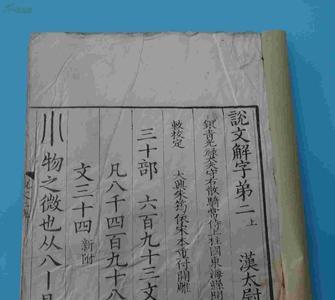 說文解字弟二上
漢太尉
銀青光祿大夫守右散騎常侍上柱國東海縣開
敕校定
大興朱筠依宋本重付開雕
三十部 六百九十三文
凡八千四百九十八
文三十四 新附
川 物之微也从八丨